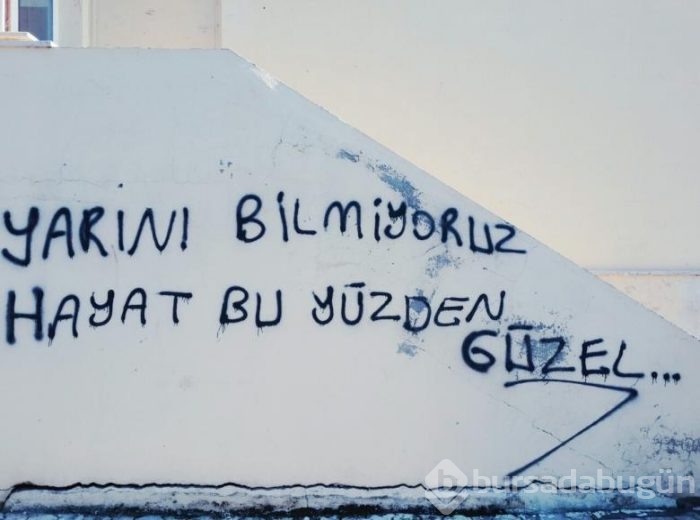 YARINI BİLMİYORUZ
HAYAT BU YÜZDEN
GÜZEL...
bursadabugün